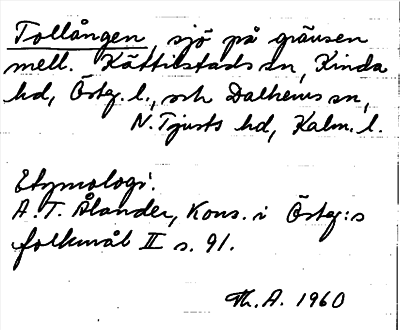 Tollången, sjö på gränsen
mell. Kättilstads sn, Kinda
hd, Östg. l., och Dalhems sn,
N. Tjusts hd, Kalm. l.
Etymologi:
A. T. Ålander, Kons. i Östg:s
folkmål II s. 91.
Th. A. 1960